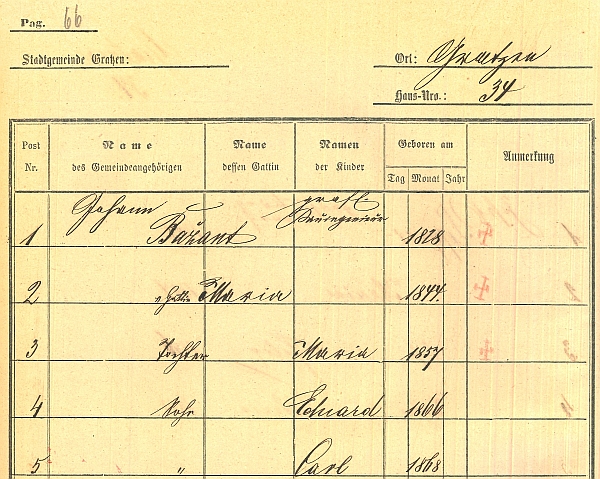 Pag. 66
Stadtgemeinde Gratzen:
Ort: Gratzen
Haus-Nro.: 34
Post Nr. Name des Gemeindeangehörigen Name dessen Gattin Namen der Kinder Geboren am Tag Monat Jahr Anmerkung
1 Johann Bažant gräfl. Bauingenieur 1828
2 Gattin Maria 1844
3 Tochter Maria 1857
4 Sohn Eduard 1866
5 " Carl 1868